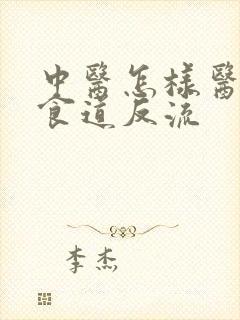 中醫怎樣醫
食道反流
李杰